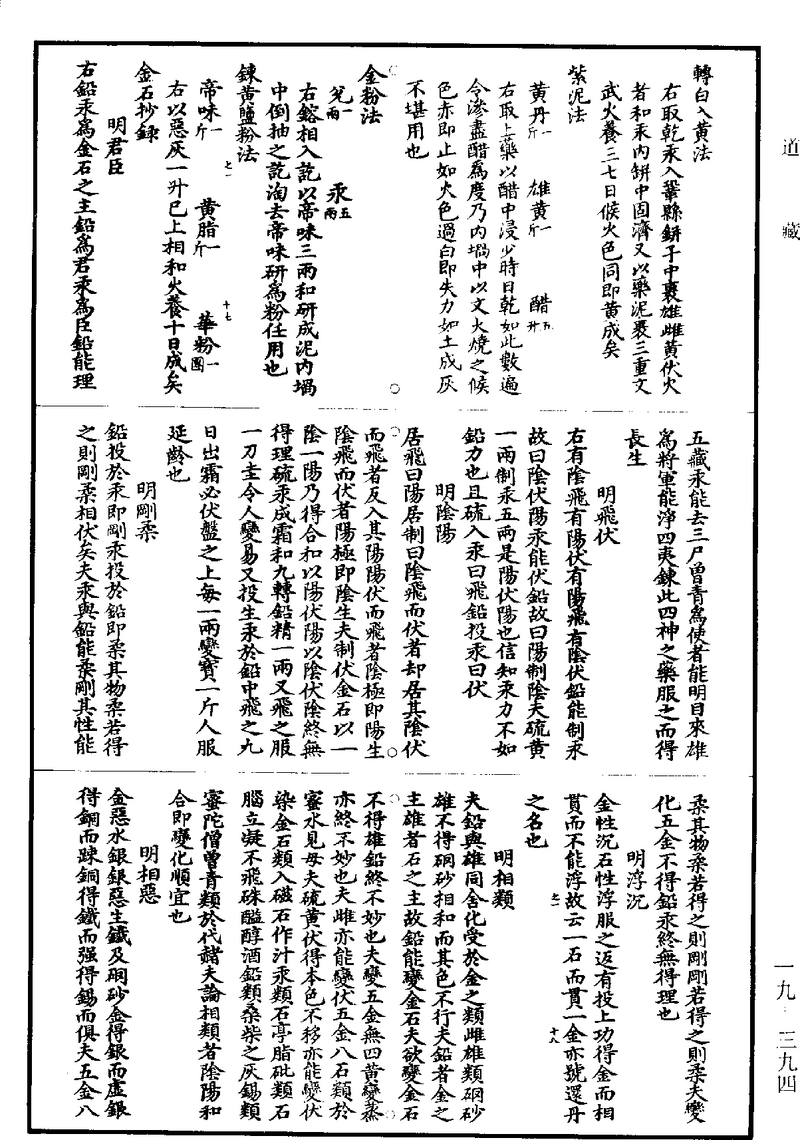 道藏
轉白入黃法
右取乾汞入鞏縣鉼子中裹雄雌黃伏火
者和汞內鉼中固濟又以藥泥裹三重文
武火養三七日候火色同即黃成矣
紫泥法
黃丹一斤 雄黃一斤 醋五升
右取上藥以醋中浸少時日乾如此數遍
令滲盡醋爲度乃內堝中以文火燒之候
色赤即止如火色過白即失力如土成灰
不堪用也
金粉法
兊一兩 汞五兩
右鎔相入訖以帝味三兩和研成泥內堝
中倒抽之訖淘去帝味研爲粉任用也
鍊黃鹽粉法
七一 十七
帝味一斤 黃脂一斤 華粉一團
右以惡灰一升已上相和火養十日成矣
金石抄録
明君臣
右鉛汞爲金石之主鉛爲君汞爲臣鉛能理
五藏汞能去三尸曾青爲使者能明目來雄
爲將軍能淨四夷鍊此四神之藥服之而得
長生
明飛伏
右有陰飛有陽伏有陽飛有陰伏鉛能制汞
故曰陰伏陽汞能伏鉛故曰陽制陰夫硫黃
一兩制汞五兩是陽伏陽也信知汞力不如
鉛力也且硫入汞曰飛鉛投汞曰伏
明陰陽
居飛曰陽居制曰陰飛而伏者却居其陰伏
而飛者反入其陽陽伏而飛者陰極即陽生
陰飛而伏者陽極即陰生夫制伏金石以一
陰一陽乃得合和以陽伏陽以陰伏陰終無
得理硫汞成霜和九轉鉛精一兩又飛之服
一刀圭令人變易又投生汞於鉛中飛之九
日出霜必伏盤之上每一兩變寶一斤人服
延齡也
明剛柔
鉛投於汞即剛汞投於鉛即柔其物柔若得
之則剛柔相伏矣夫汞與鉛能柔剛其性能
柔其物柔若得之則剛剛若得之則柔夫變
化五金不得鉛汞終無得理也
明浮沉
金性沉石性浮服之返有投上功得金而相
貫而不能浮故云一石而貫一金亦號還丹
七一 十八
之名也
明相類
夫鉛與雄同舍化受於金之類雌雄類硇砂
雄不得硇砂相和而其色不行夫鉛者金之
主雄者石之主故鉛能變金石夫欲變金石
不得雄鉛終不妙也夫變五金無四黃變㷱
亦終不妙也夫雌亦能變伏五金八石類於
蜜水見毋夫硫黃伏得本色不移亦能變伏
染金石類入磁石作汁汞類石亭脂砒類石
腦立凝不飛硃醖醇酒鉛類桑柴之灰錫類
蜜陀僧曾青類於代赭夫論相類若陰陽和
合即變化順宜也
明相惡
金惡水銀銀惡生鐵及硇砂金得銀而虛銀
得銅而踈銅得鐵而强得錫而俱夫五金八
一九・三九四